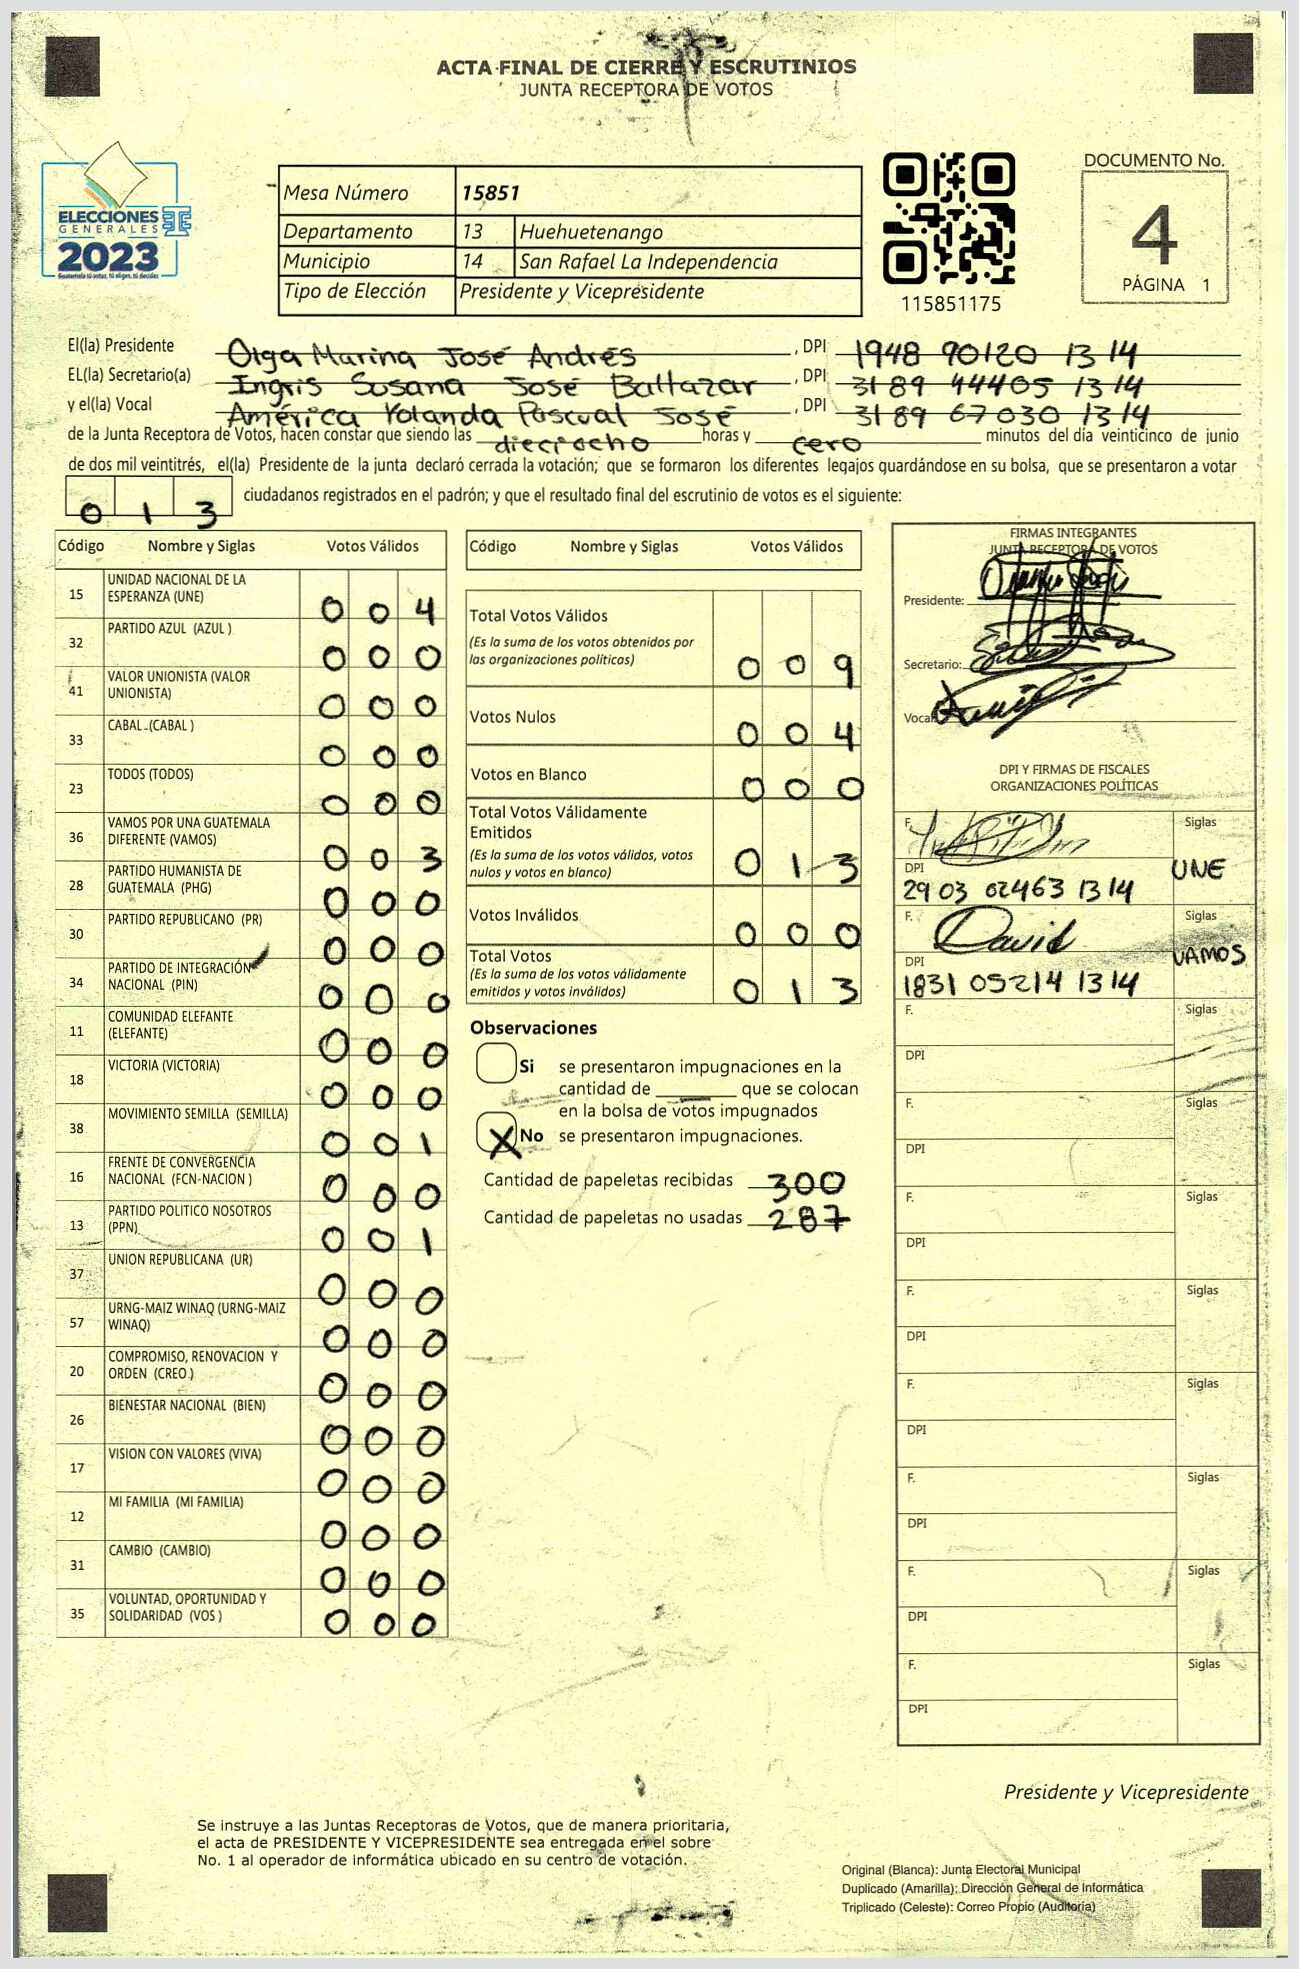 ACTA FINAL DE CIERRE Y ESCRUTINIOS
JUNTA RECEPTORA DE VOTOS
ELECCIONES
GENERALES
2023
Mesa Número 15851
Departamento 13 Huehuetenango
Municipio 14 San Rafael La Independencia
Tipo de Elección Presidente y Vicepresidente
115851175
DOCUMENTO No.
4
PÁGINA 1
El(la) Presidente Olga Marina José Andrés , DPI 1948 90120 1314
EL(la) Secretario(a) Ingris Susana José Baltazar , DPI 3189 44405 1314
y el(la) Vocal América Yolanda Pascual José , DPI 3189 67030 1314
de la Junta Receptora de Votos, hacen constar que siendo las dieciocho horas y cero minutos del día veinticinco de junio
de dos mil veintitrés, el(la) Presidente de la junta declaró cerrada la votación; que se formaron los diferentes legajos guardándose en su bolsa, que se presentaron a votar
013 ciudadanos registrados en el padrón; y que el resultado final del escrutinio de votos es el siguiente:
Código Nombre y Siglas Votos Válidos
15 UNIDAD NACIONAL DE LA ESPERANZA (UNE) 004
32 PARTIDO AZUL (AZUL ) 000
41 VALOR UNIONISTA (VALOR UNIONISTA) 000
33 CABAL (CABAL ) 000
23 TODOS (TODOS) 000
36 VAMOS POR UNA GUATEMALA DIFERENTE (VAMOS) 003
28 PARTIDO HUMANISTA DE GUATEMALA (PHG) 000
30 PARTIDO REPUBLICANO (PR) 000
34 PARTIDO DE INTEGRACIÓN NACIONAL (PIN) 000
11 COMUNIDAD ELEFANTE (ELEFANTE) 000
18 VICTORIA (VICTORIA) 000
38 MOVIMIENTO SEMILLA (SEMILLA) 001
16 FRENTE DE CONVERGENCIA NACIONAL (FCN-NACION ) 000
13 PARTIDO POLITICO NOSOTROS (PPN) 001
37 UNION REPUBLICANA (UR) 000
57 URNG-MAIZ WINAQ (URNG-MAIZ WINAQ) 000
20 COMPROMISO, RENOVACION Y ORDEN (CREO ) 000
26 BIENESTAR NACIONAL (BIEN) 000
17 VISION CON VALORES (VIVA) 000
12 MI FAMILIA (MI FAMILIA) 000
31 CAMBIO (CAMBIO) 000
35 VOLUNTAD, OPORTUNIDAD Y SOLIDARIDAD (VOS ) 000
Código Nombre y Siglas Votos Válidos
Total Votos Válidos
(Es la suma de los votos obtenidos por
las organizaciones políticas) 009
Votos Nulos 004
Votos en Blanco 000
Total Votos Válidamente
Emitidos
(Es la suma de los votos válidos, votos
nulos y votos en blanco) 013
Votos Inválidos 000
Total Votos
(Es la suma de los votos válidamente
emitidos y votos inválidos) 013
Observaciones
Si se presentaron impugnaciones en la
cantidad de ______ que se colocan
en la bolsa de votos impugnados
X No se presentaron impugnaciones.
Cantidad de papeletas recibidas 300
Cantidad de papeletas no usadas 287
FIRMAS INTEGRANTES
JUNTA RECEPTORA DE VOTOS
Presidente:
Secretario:
Vocal
DPI Y FIRMAS DE FISCALES
ORGANIZACIONES POLÍTICAS
F. Siglas
UNE
DPI
2903 02463 1314
F. David Siglas
VAMOS
DPI
1831 05214 1314
F. Siglas
DPI
F. Siglas
DPI
F. Siglas
DPI
F. Siglas
DPI
F. Siglas
DPI
F. Siglas
DPI
F. Siglas
DPI
F. Siglas
DPI
Presidente y Vicepresidente
Se instruye a las Juntas Receptoras de Votos, que de manera prioritaria,
el acta de PRESIDENTE Y VICEPRESIDENTE sea entregada en el sobre
No. 1 al operador de informática ubicado en su centro de votación.
Original (Blanca): Junta Electoral Municipal
Duplicado (Amarilla): Dirección General de Informática
Triplicado (Celeste): Correo Propio (Auditoria)